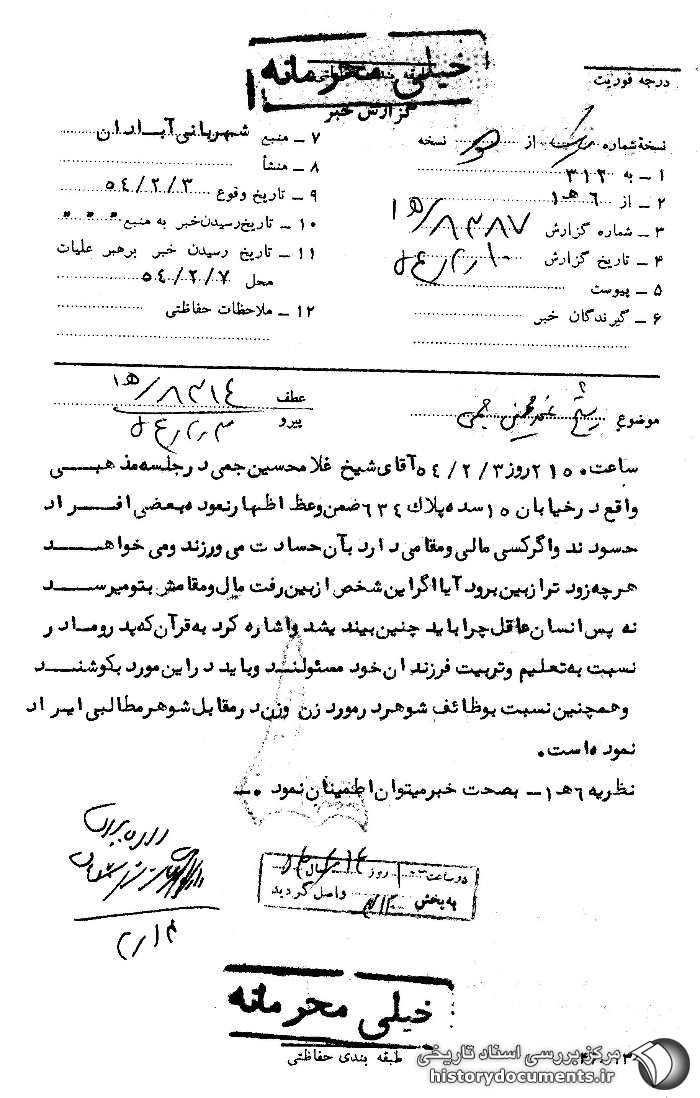 خیلی محرمانه
درجه فوریت
گزارش خبر
نسخه شماره از نسخه
۱ ـ به ۳۱۲
۲ ـ از ۱ﻫ۶
۳ ـ شماره گزارش ۱ﻫ/۸۳۸۷
۴ ـ تاریخ گزارش
۵ ـ پیوست
۶ ـ گیرندگان خبر
۷ ـ منبع شهربانی آبادان
۸ ـ منشأ
۹ ـ تاریخ وقوع ۵۴/۲/۳
۱۰ ـ تاریخ رسیدن خبر به منبع
۱۱ ـ تاریخ رسیدن خبر برهبر عملیات
محل ۵۴/۲/۷
۱۲ ـ ملاحظات حفاظتی
موضوع شیخ جمی
عطف ۱ﻫ/۸۳۱۴
پیرو
ساعت ۲۱۵۰ روز ۵۴/۲/۳ آقای شیخ غلامحسین جمی در جلسه مذهبی
واقع در خیابان ۱۵ سده پلاک ۶۳۴ ضمن وعظ اظهار نموده بعضی افراد
حسودند واگر کسی مالی ومقامی دارد بآن حسادت می ورزند ومی خواهند
هرچه زودتر ازبین برود آیا اگر این شخص ازبین رفت مال ومقامش بتو میرسد
نه پس انسان عاقل چرا باید چنین بیندیشد واشاره کرد به قرآن که پدر ومادر
نسبت به تعلیم وتربیت فرزندان خود مسئولند وباید دراین مورد بکوشند
وهمچنین نسبت بوظائف شوهر درمورد زن وزن درمقابل شوهر مطالبی ایراد
نموده است.
نظریه ۶ﻫ۱ـ بصحت خبر میتوان اطمینان نمود .ـ
در ساعت روز سال
به بخش ۳۱۲ واصل گردید
خیلی محرمانه
طبقه بندی حفاظتی
مرکز بررسی اسناد تاریخی
historydocuments.ir